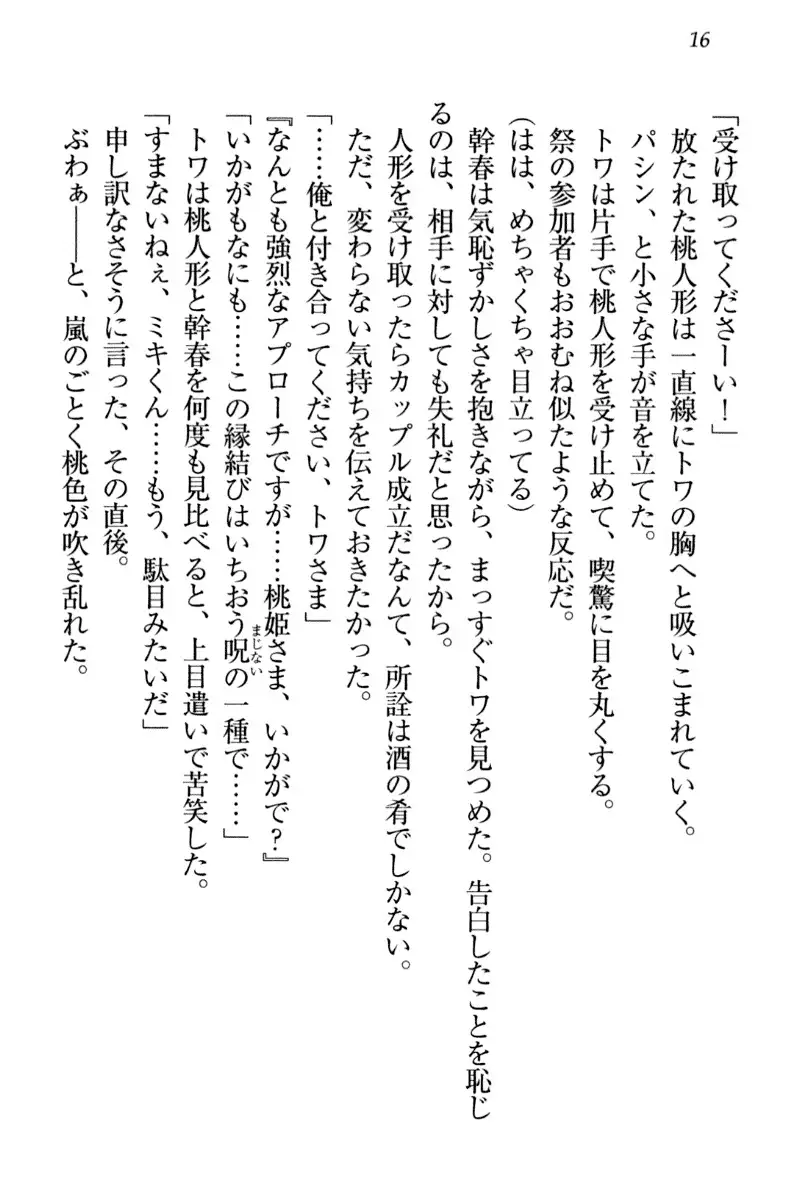 16
「受け取ってくださーい！」
放たれた桃人形は一直線にトワの胸へと吸いこまれていく。
パシン、と小さな手が音を立てた。
トワは片手で桃人形を受け止めて、喫驚に目を丸くする。
祭の参加者もおおむね似たような反応だ。
（はは、めちゃくちゃ目立ってる）
幹春は気恥ずかしさを抱きながら、まっすぐトワを見つめた。告白したことを恥じ
るのは、相手に対しても失礼だと思ったから。
人形を受け取ったらカップル成立だなんて、所詮は酒の肴でしかない。
ただ、変わらない気持ちを伝えておきたかった。
「……俺と付き合ってください、トワさま」
『なんとも強烈なアプローチですが……桃姫さま、いかがで？』
「いかがもなにも……この縁結びはいちおう呪の一種で……」
まじない
トワは桃人形と幹春を何度も見比べると、上目遣いで苦笑した。
「すまないねぇ、ミキくん……もう、駄目みたいだ」
申し訳なさそうに言った、その直後。
ぶわぁ――と、嵐のごとく桃色が吹き乱れた。